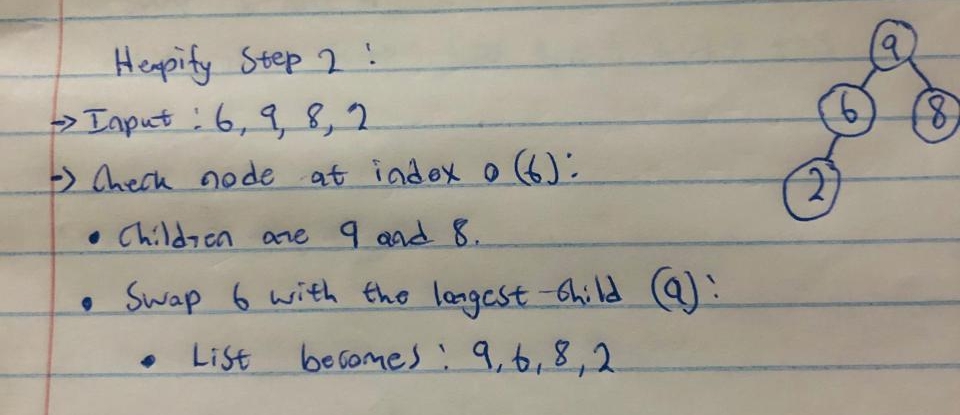 Heapify Step 2 :
→ Input : 6, 9, 8, 2
→ Check node at index 0 (6) :
• Children are 9 and 8.
• Swap 6 with the largest child (9) :
• List becomes : 9, 6, 8, 2
9
6 8
2